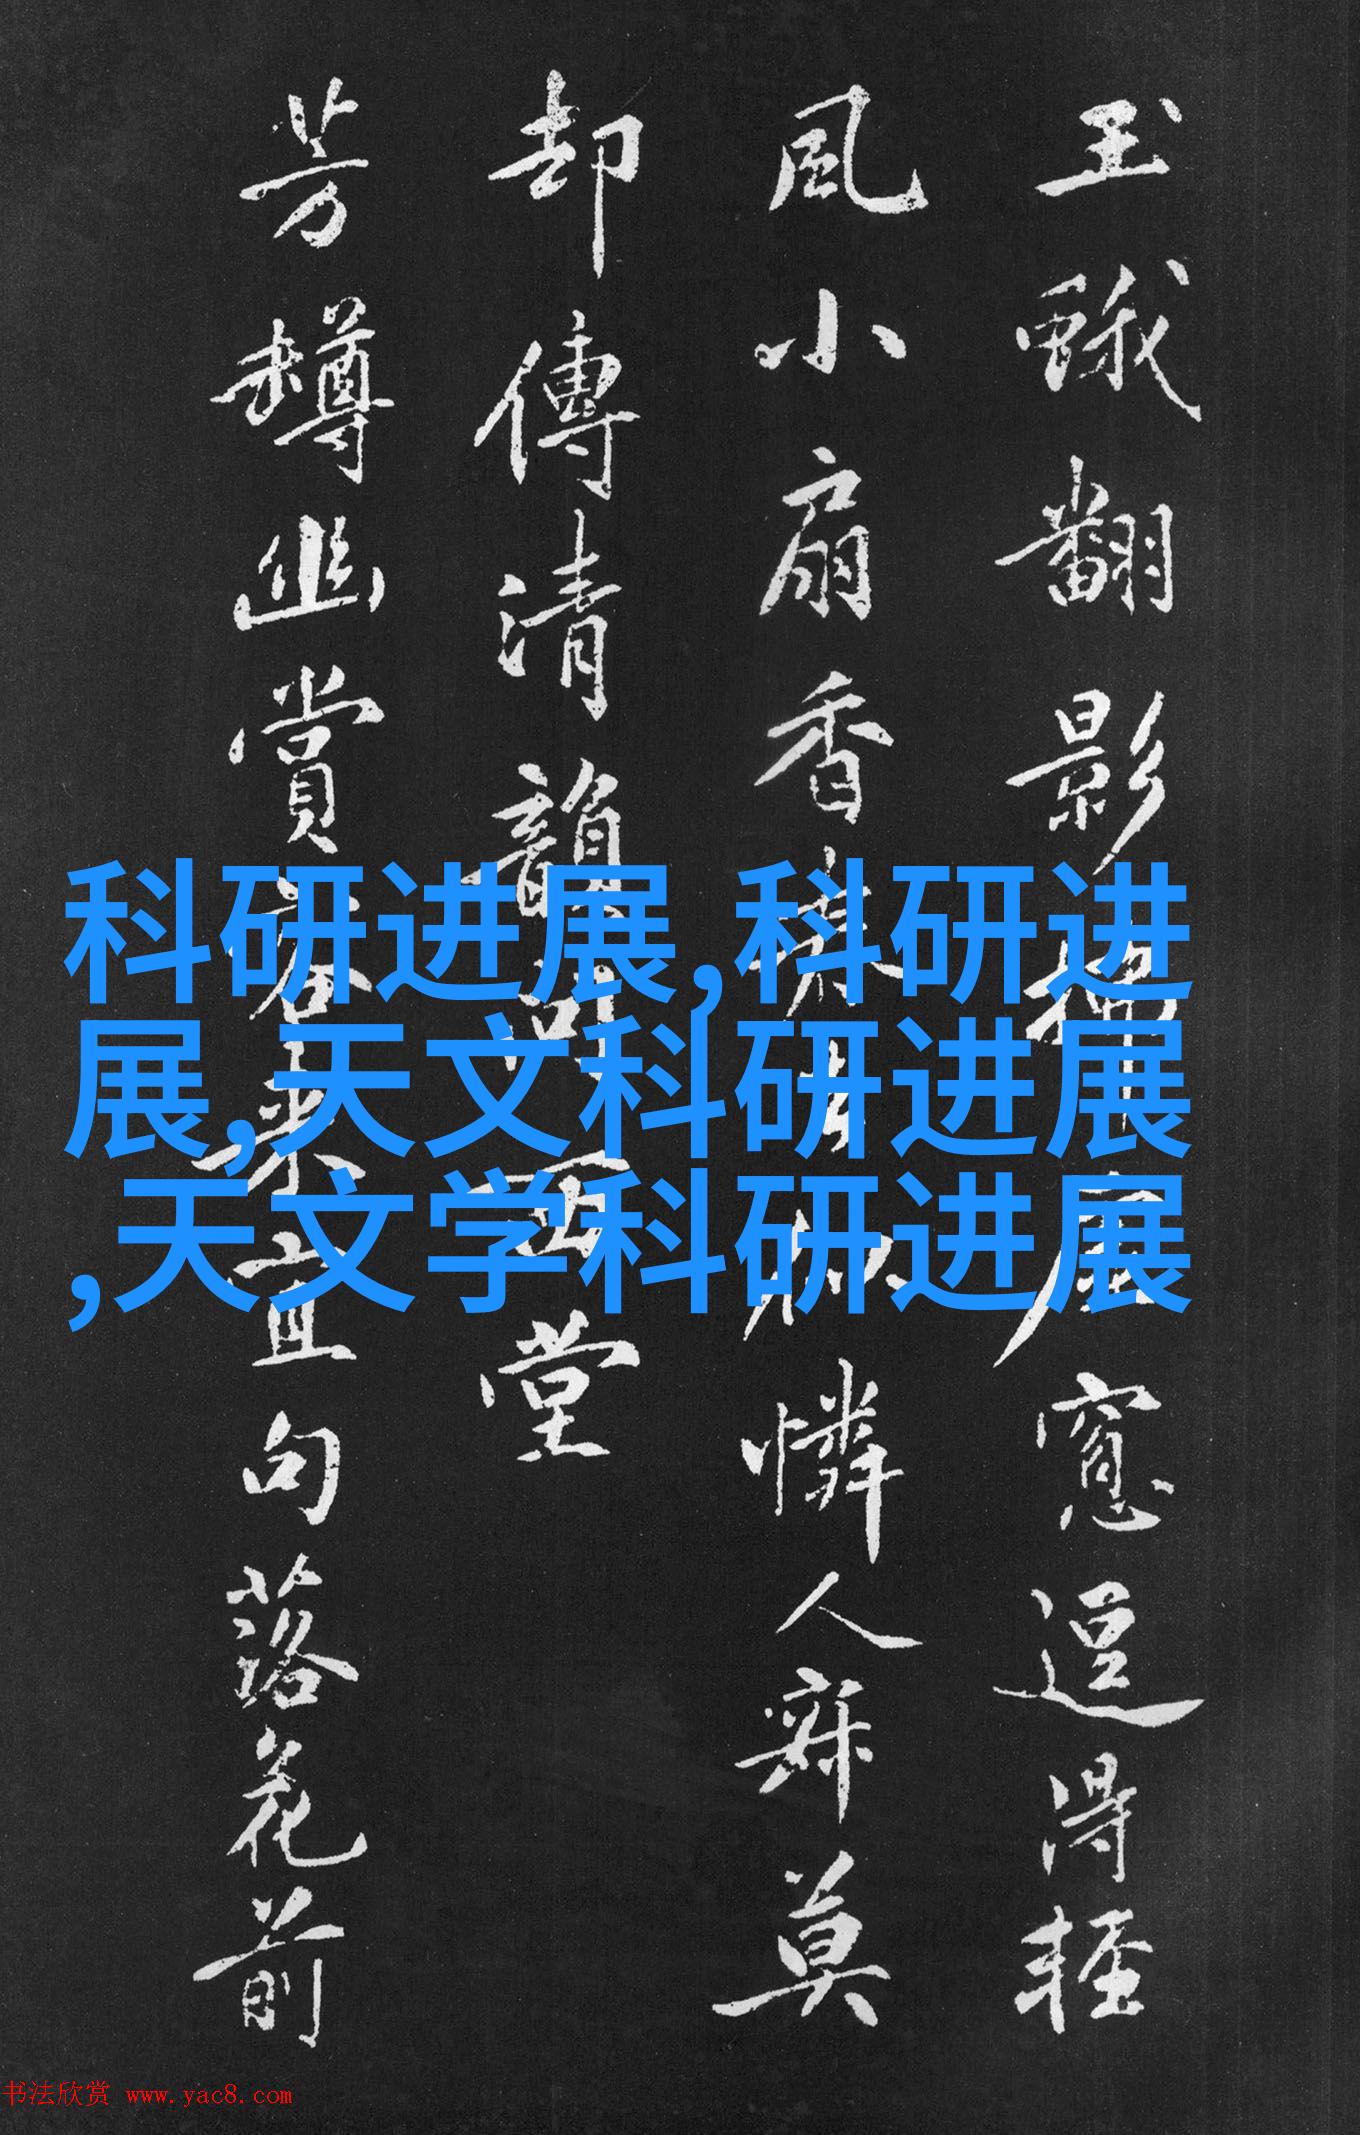 玉蛾翻影窓逗得輕
風小扇香憐人寐莫
却傳清韻西堂
芳樽幽賞客来宜句落花前
科研进展,科研进
展,天文科研进展
,天文学科研进展
书法欣赏 www.yac8.com